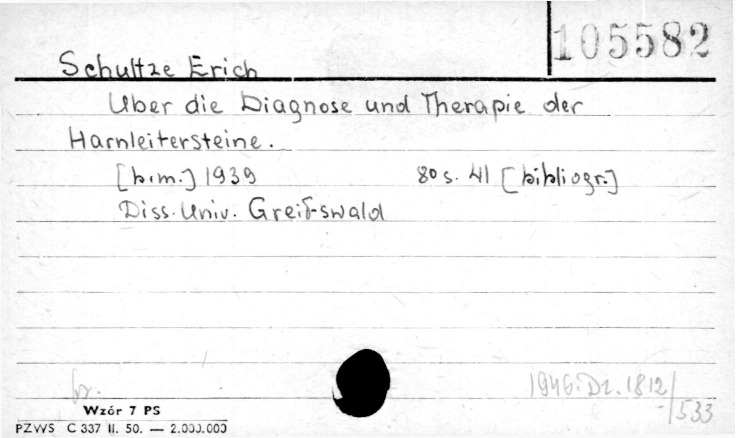 105582
Schultze Erich
Über die Diagnose und Therapie der
Harnleitersteine.
[b.m.] 1939 80 s. 41 [bibliogr.]
Diss. Univ. Greifswald
br.
1946: Dz. 1812/
533
Wzór 7 PS
PZWS C 337 II. 50. — 2.000.000